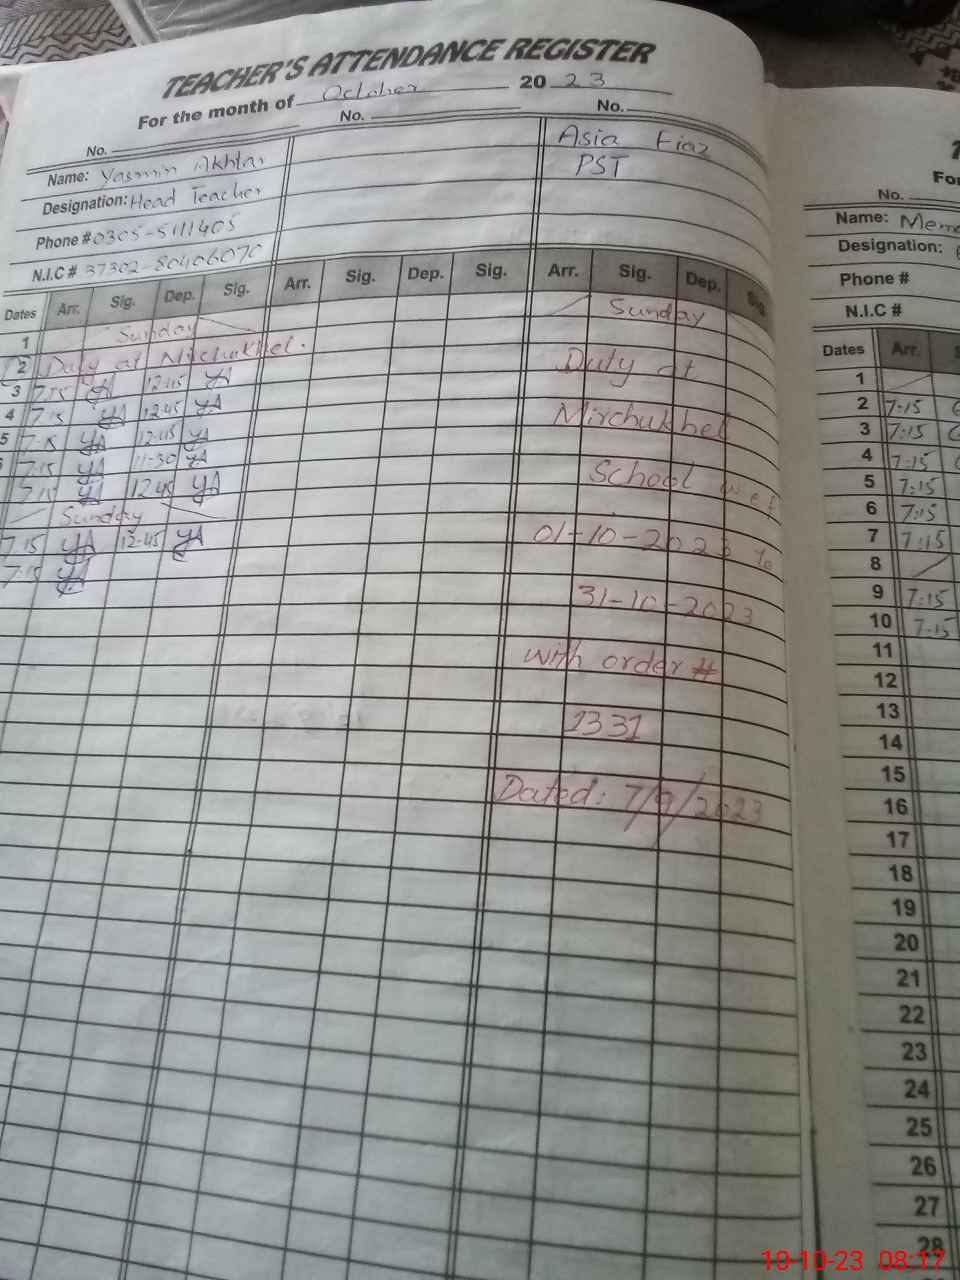 TEACHER'S ATTENDANCE REGISTER
For the month of October 20 23
No. No. No.
Name: Yasmin Akhtar Asia Fiaz
Designation: Head Teacher PST
Phone # 0305-5111405
N.I.C # 37302-80406070
Dates Arr. Sig. Dep. Sig. Arr. Sig. Dep. Sig. Arr. Sig. Dep. Sig.
1 Sunday Sunday
2 Duty at Mirchukhel. Duty at
3 7.15 YA 12.45 YA
4 7.15 YA 12.45 YA Mirchukhel
5 7.15 YA 12.45 YA
7.15 YA 11-30 YA School w e f
7.15 YA 12.45 YA
Sunday 01-10-2023 to
7.15 YA 12-45 YA
7.15 YA 31-10-2023
with order #
1331
Dated: 7/9/2023
For
No.
Name: Mem
Designation:
Phone #
N.I.C #
Dates Arr.
1
2 7:15
3 7:15
4 7:15
5 7:15
6 7:15
7 7:15
8
9 7:15
10 7-15
11
12
13
14
15
16
17
18
19
20
21
22
23
24
25
26
27
28
10-10-23 08:17